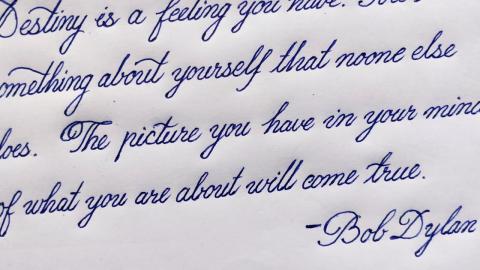 Destiny is a feeling you have.
something about yourself that noone else
does. The picture you have in your mind
of what you are about will come true.
-Bob Dylan